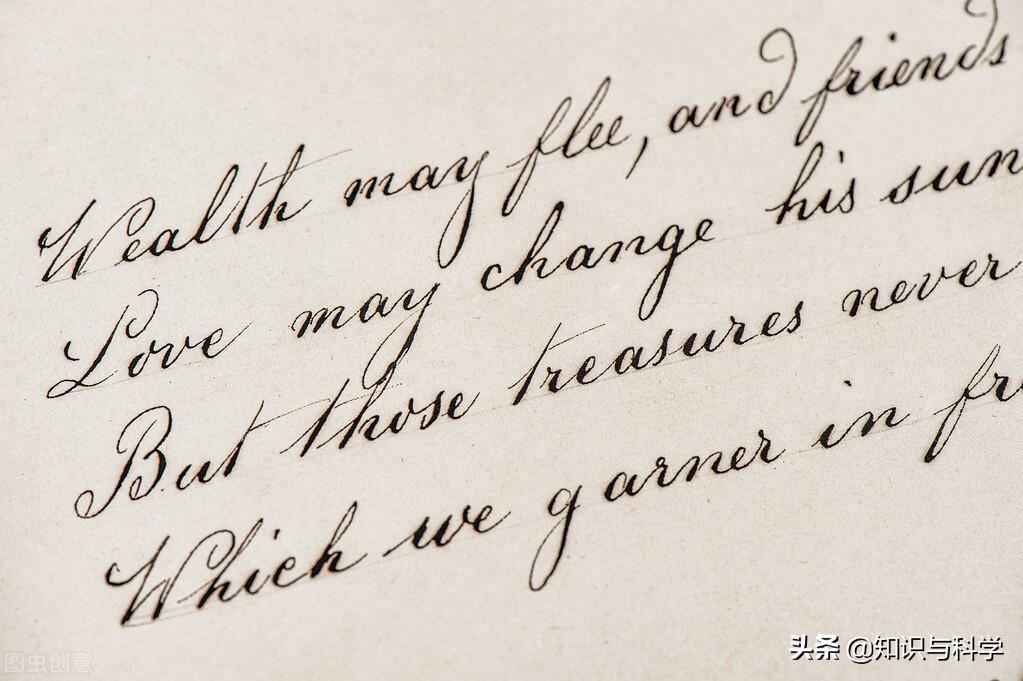 Wealth may flee, and friends
Love may change his sun
But those treasures never
Which we garner in fr
图虫创意
头条 @知识与科学